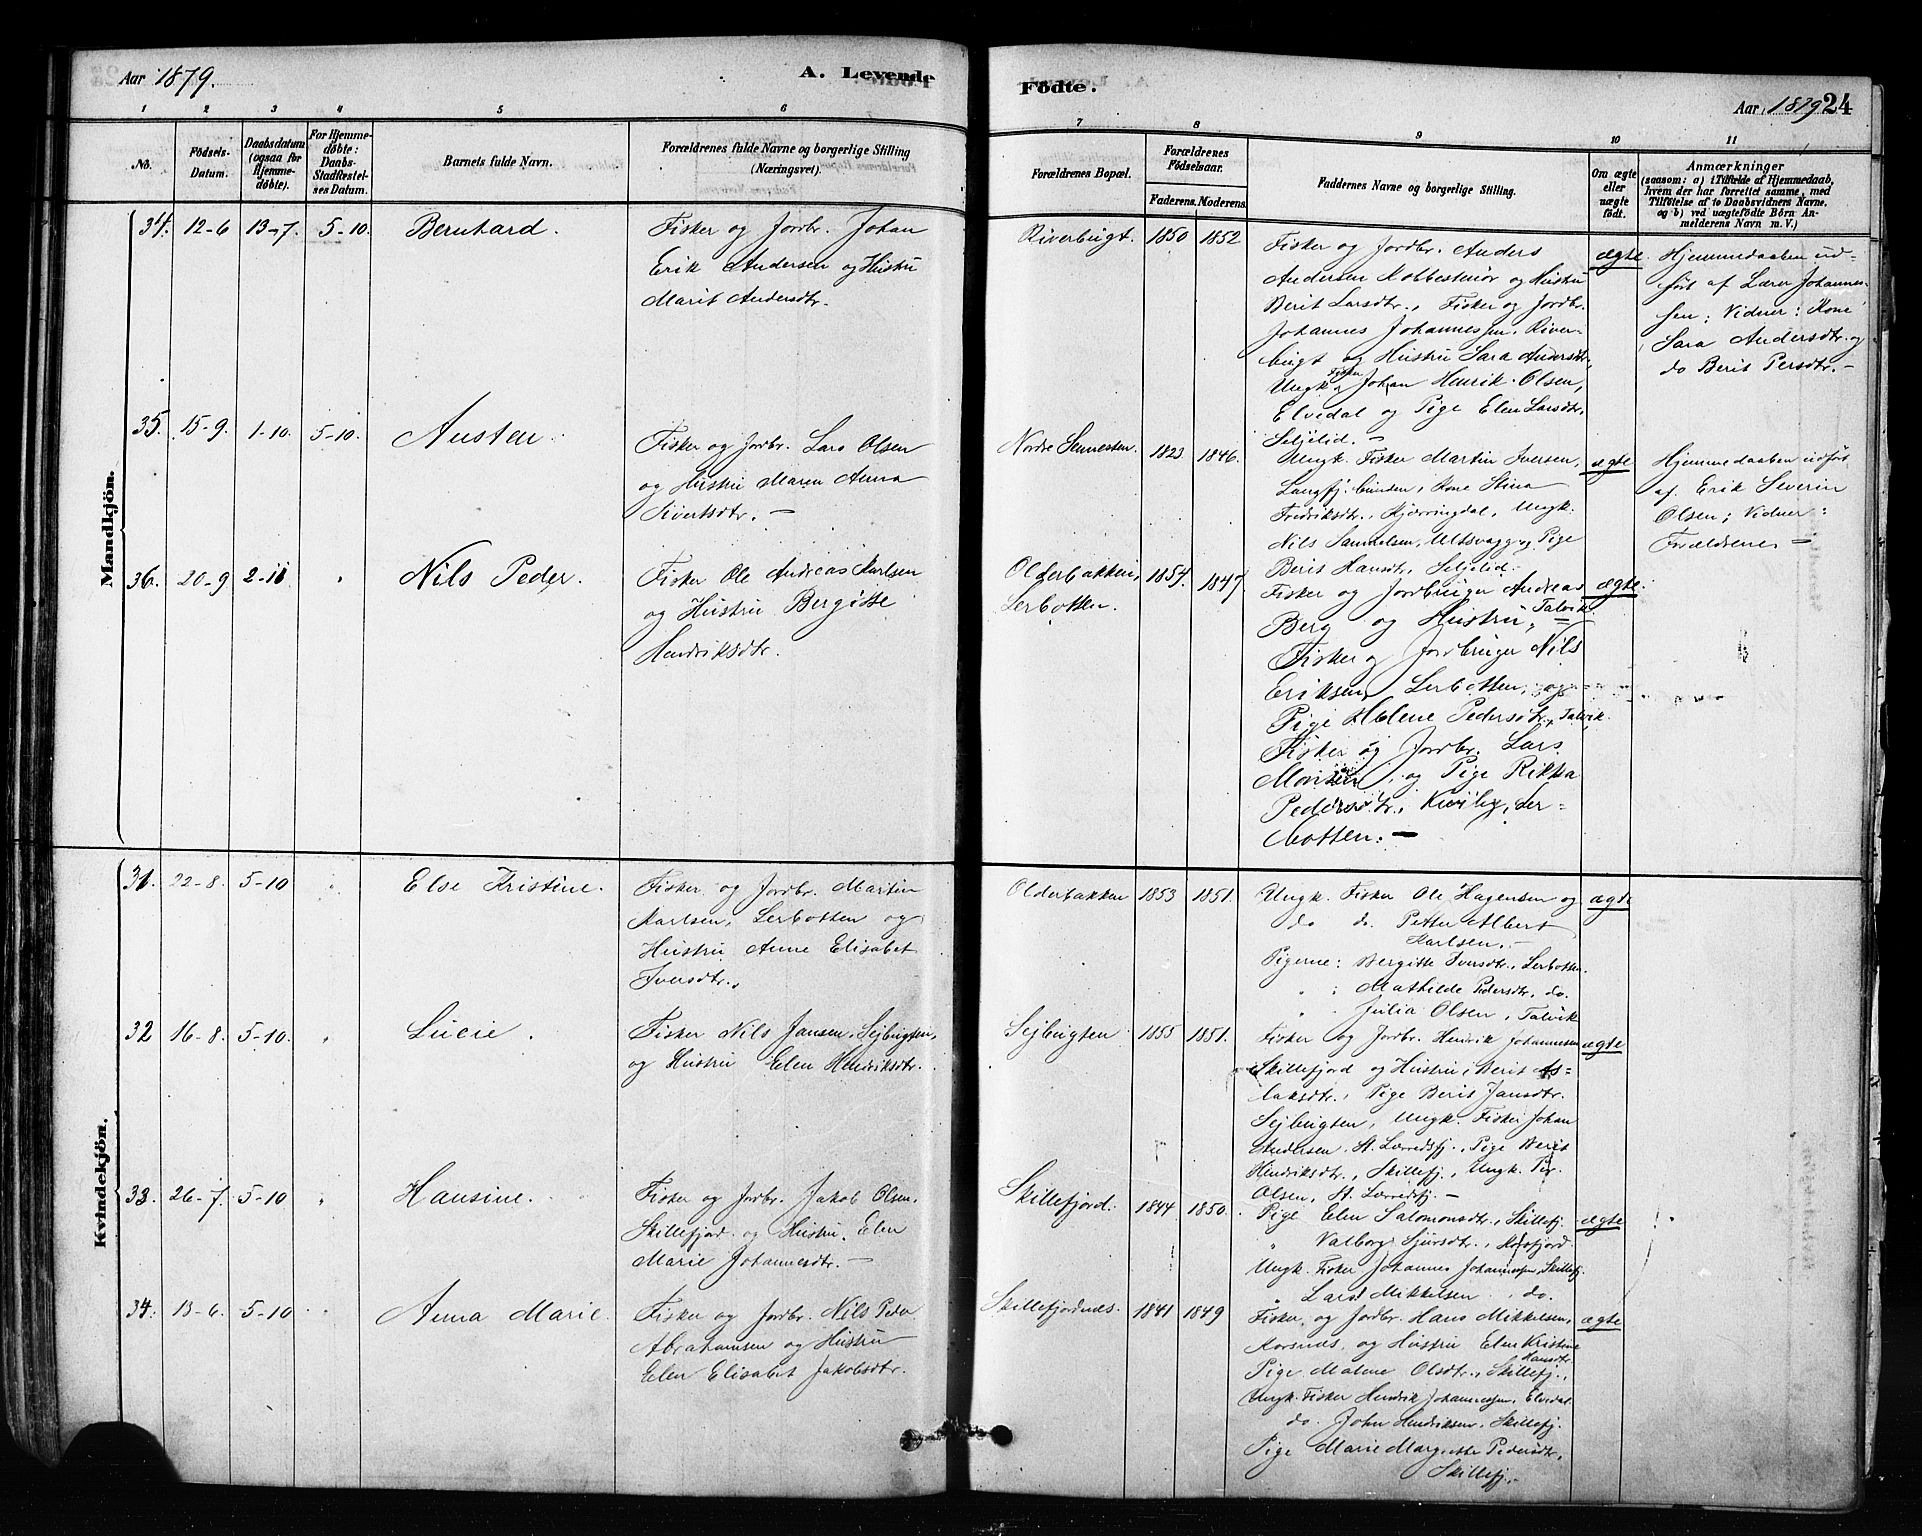 Aar 1879.
A. Levende
Födte.
Aar 1879 24
1 2 3 4 5 6 7 8 9 10 11
No.
Födsels-Datum.
Daabsdatum (ogsaa for Hjemmedöbte).
For Hjemmedöbte: Daabs-Stadfæstelses Datum.
Barnets fulde Navn.
Forældrenes fulde Navne og borgerlige Stilling (Næringsvei).
Forældrenes Bopæl.
Forældrenes Födselsaar.
Faderens. Moderens.
Faddernes Navne og borgerlige Stilling.
Om ægte eller uægte födt.
Anmærkninger
(saasom: a) i Tilfælde af Hjemmedaab,
hvem der har forrettet samme, med
Tilföielse af to Daabsvidners Navne,
og b) ved uægtefödte Börn An-
melderens Navn m. V.)
Mandkjön.
34. 12-6 13-7. 5-10. Bernhard.
Fisker og Jordbr. Johan
Erik Andersen og Hustru
Marit Andersdtr.
Riverbugt. 1850 1852
Fisker og Jordbr. Anders
Andersen Kobbestniör og Hustru
Berit Larsdtr., Fisker og Jordbr.
Johannes Johannessen, River-
bugt og Hustru Sara Andersdtr,
Ungk. Fisker Johan Henrik Olsen,
Elvedal og Pige Elen Larsdtr.
Seljelid. –
ægte.
Hjemmedaaben ud-
ført af Lærer Johannes-
sen; Vidner: Kone
Sara Andersdtr. og
do Berit Persdtr. –
35. 15-9. 1-10. 5-10. Austen.
Fisker og Jordbr. Lars Olsen
og Hustru Maren Anna
Sivertsdtr. –
Nordre 1823 1846.
Ungk. Fisker Martin Iversen,
Langfj. bunden, Kone Stina
Fredriksdtr., Kjærringdal, Ungk.
Nils Samuelsen, Ultsvagg og Pige
Berit Hansdtr, Seljelid.
ægte
Hjemmedaaben udført
af Erik Severin
Olsen; Vidner:
Forældrene –
36. 20-9. 2-11 " Nils Peder.
Fisker Ole Andreas Karlsen
og Hustru Bergitte
Hendriksdtr.
Olderbakken, Lerbotten. 1854. 1847.
Fisker og Jordbruger Andreas
Berg og Hustru, Talvik.
Fisker og Jordbruger Nils
Eriksen, Lerbotten, og
Pige Helene Pedersdtr, Talvik.
Fisker og Jordbr. Lars
og Pige Rikka
Pedersdtr., Kviby, Ler-
botten. –
ægte.
Kvindekjön.
31. 22-8. 5-10 " Else Kristine.
Fisker og Jordbr. Martin
Karlsen, Lerbotten og
Hustru Anne Elisabet
Iversdtr.,
Olderbakken 1853 1851.
Ungk. Fisker Ole Hagensen og
do do. Petter Albert
Karlsen. –
Pigerne: Bergitte Iversdtr., Lerbotten.
" : Mathilde Pedersdtr, do.
" . Julia Olsen, Talvik
ægte
32 16-8. 5-10. " Lucie.
Fisker Nils Jansen, Sejbugten,
og Hustru Elen Hendriksdtr.
Sejbugten 1855 1851.
Fisker og Jordbr. Henrik Johannesen
Skillefjord og Hustru, Berit As-
laksdtr., Pige Berit Jansdtr.
Sejbugten, Ungk. Fisker Johan
Andersen, St. Lerredsfj., Pige Berit
Hendriksdtr., Skillefj., Ungk. Per
Olsen, St. Lerredsfj. –
ægte
33. 26-7. 5-10 " Hansine.
Fisker og Jordbr. Jakob Olsen.
Skillefjord og Hustru, Elen
Marie Johannesdtr. –
Skillefjord. 1844. 1850.
Pige Elen Salomonsdtr., Skillefj.
" Valborg Sjursdtr., Korsfjord.
Ungk. Fisker Johannes Johannessen, Skillefj.
" Lars Mikkelsen, do.
ægte
34. 13-6. 5-10 " Anna Marie.
Fisker og Jordbr. Nils Peder
Abrahamsen og Hustru
Elen Elisabet Jakobsdtr.
Skillefjordnes. 1841 1849
Fisker og Jordbr. Hans Mikkelsen,
Korsnes, og Hustru Elen Kristine
Hansdtr.
Pige Malene Olsdtr., Skillefj.,
Ungk. Fisker Hendrik Johannessen, Elvedal
do. John Hendriksen, Skillefj.
Pige Marie Margrethe Pedersdtr,
Skillefj. –
ægte